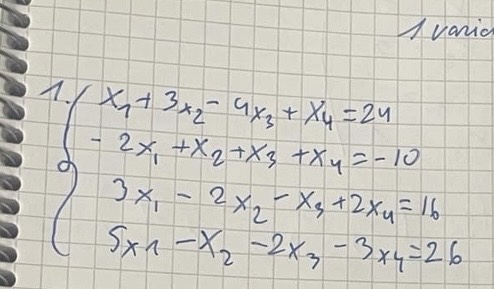 1 varia
1. x₁ + 3x₂ - 4x₃ + x₄ = 24
- 2x₁ + x₂ + x₃ + x₄ = -10
3x₁ - 2x₂ - x₃ + 2x₄ = 16
5x1 - x₂ - 2x₃ - 3x₄ = 26